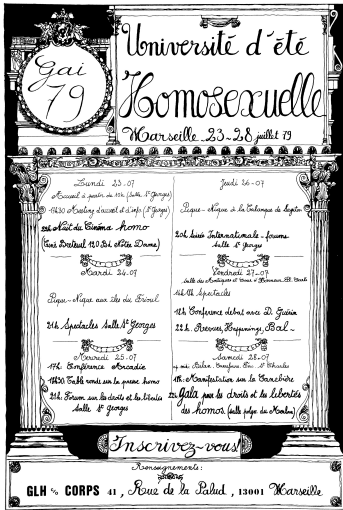 Gai
79
Université d'été
Homosexuelle
Marseille 23~28 juillet 79
Lundi 23-07
Accueil à partir de 15h (Salle St Georges)
18h30 Meeting d'accueil et d'info (St Georges)
22h Nuit du Cinéma homo
(Ciné Breteuil 120 Bd Notre Dame)
Mardi 24-07
Pique-Nique aux îles du Frioul
21h Spectacles Salle St Georges
Mercredi 25-07
17h Conférence Arcadie
18h30 Table ronde sur la presse homo
21h Forum sur les droits et les libertés
Salle St Georges
Jeudi 26-07
Pique-Nique à la Calanque de Sugiton
20h Soirée Internationale-forums
Salle St Georges
Vendredi 27-07
Salle des
14h-17h Spectacles
18h Conférence débat avec D. Guérin
22h. Préaves, Happenings, Bal-
Samedi 28-07
St Charles
17h-Manifestation sur la Canebière
22h Gala pour les droits et les libertés
des homos (salle polyv. du Moulin)
Inscrivez~vous!
Renseignements:
GLH c/o CORPS 41, Rue de la Palud, 13001 Marseille